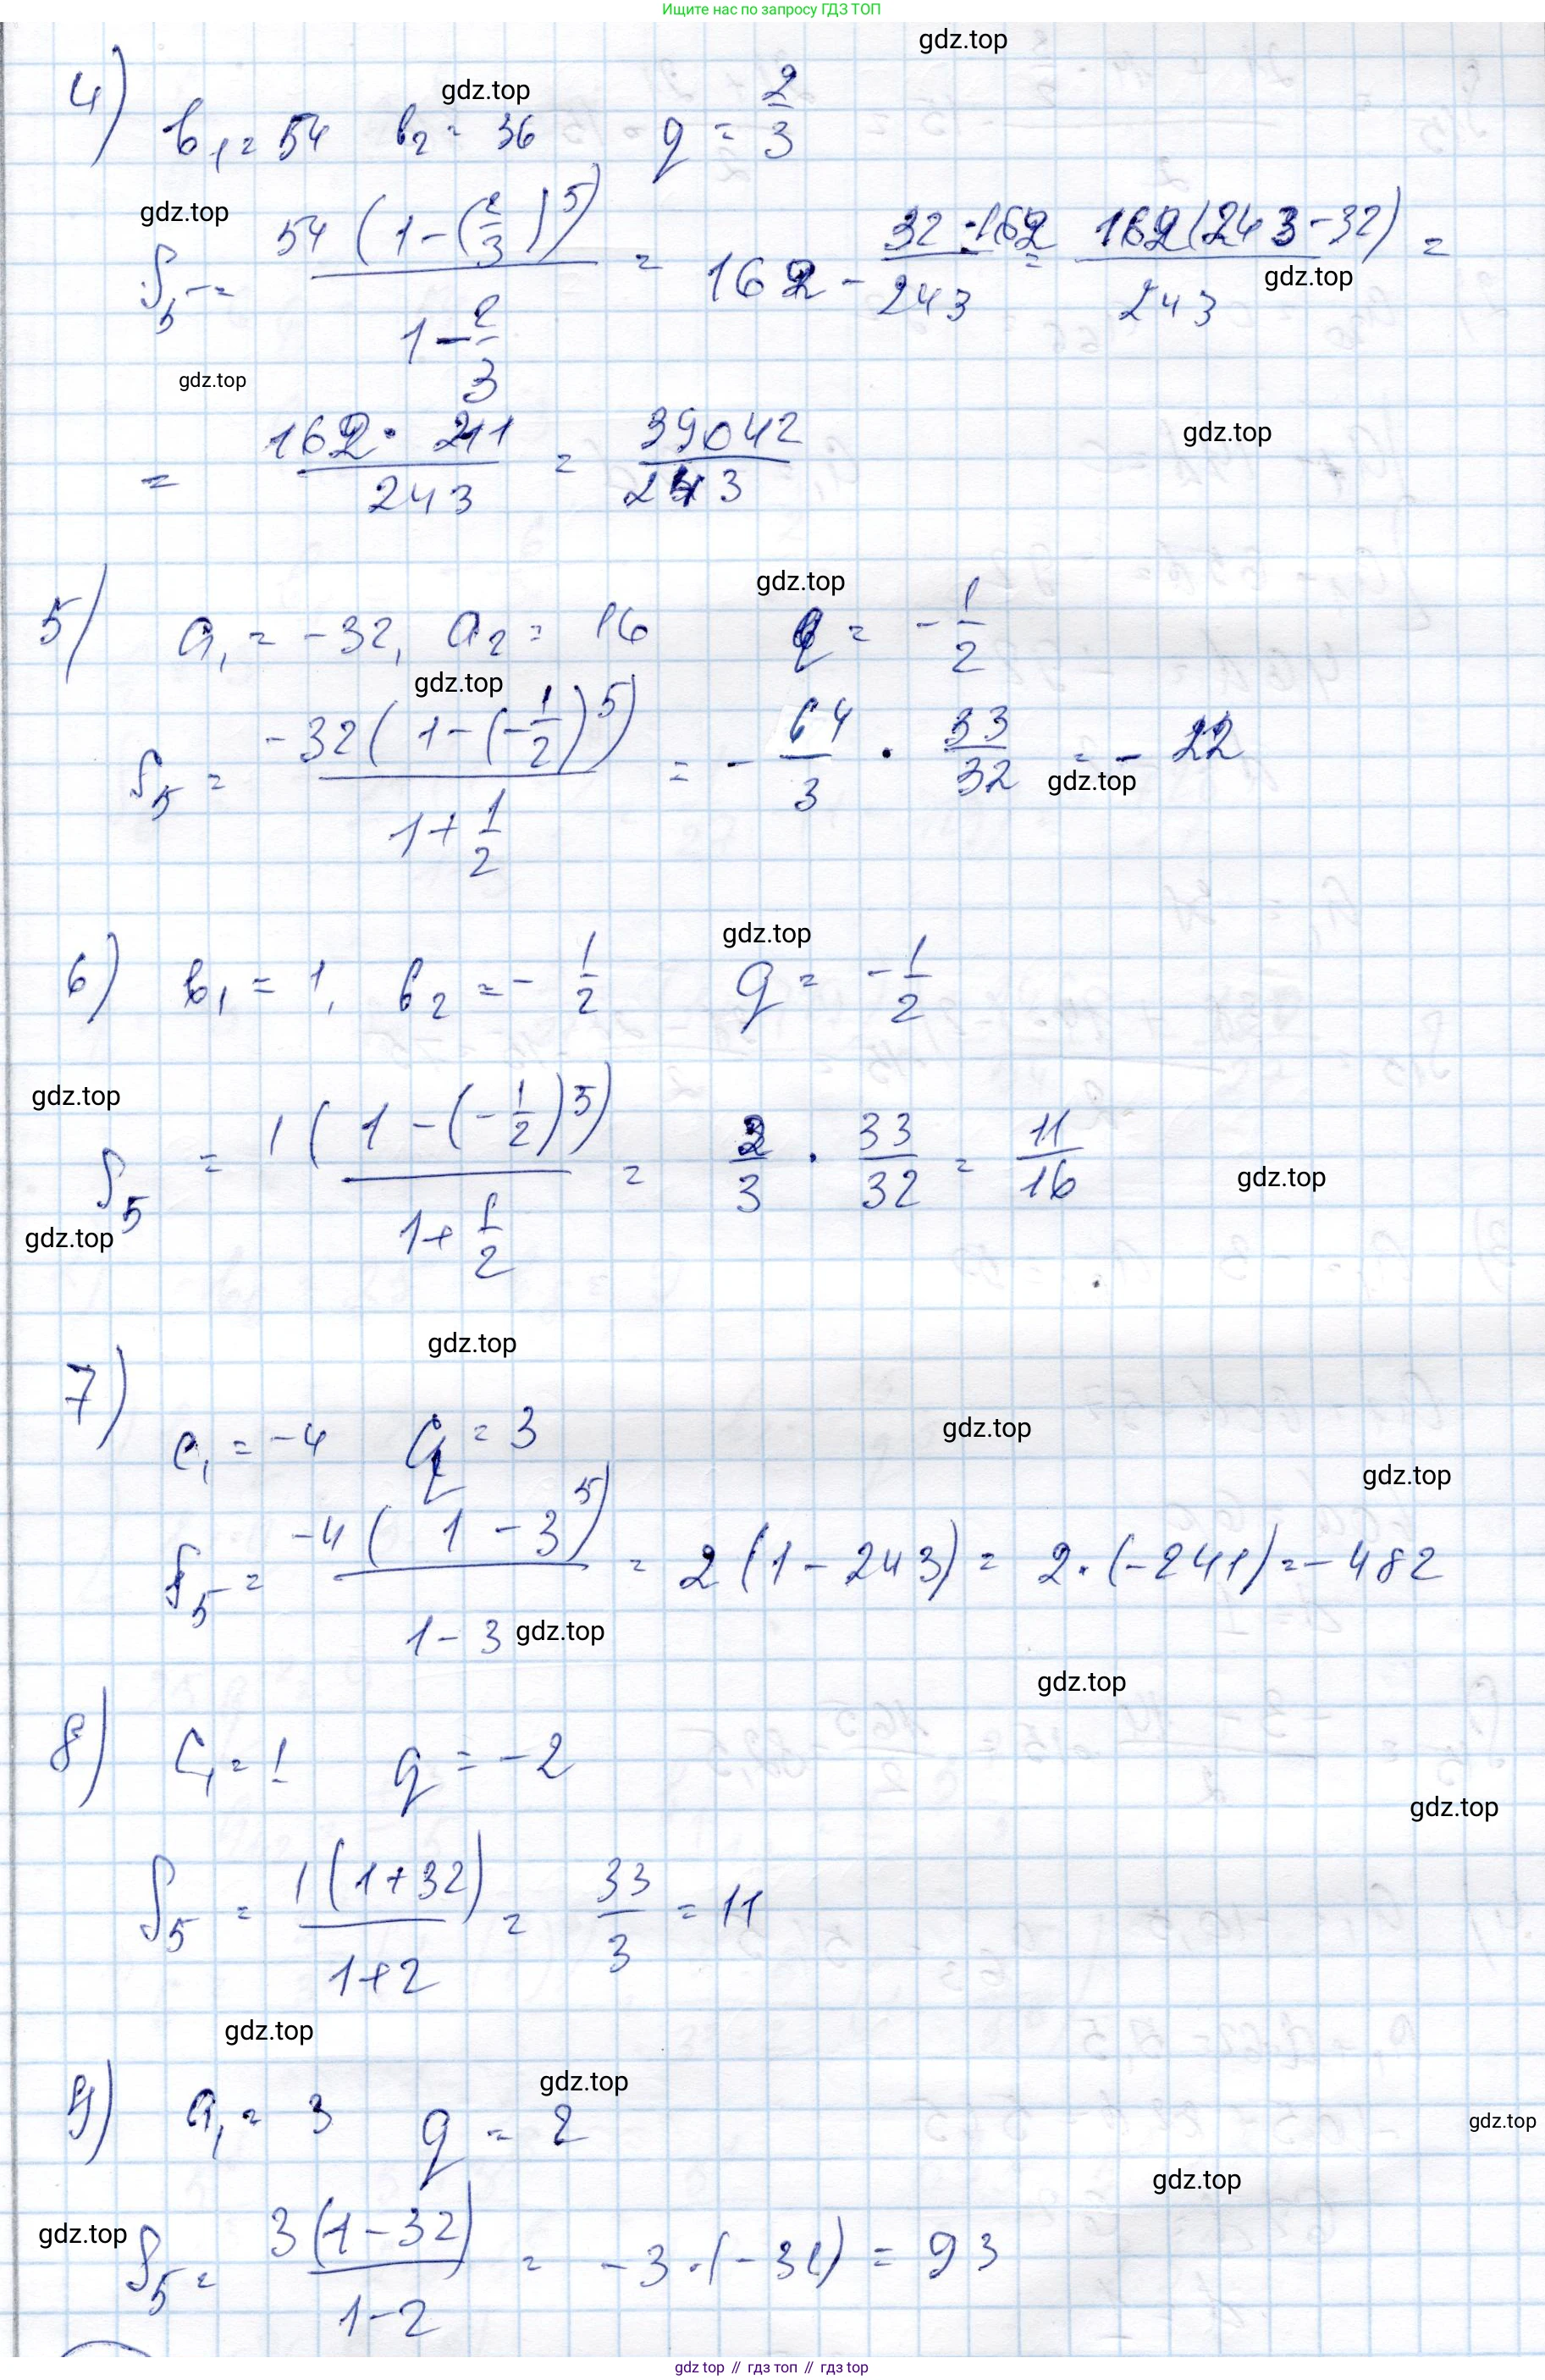 Ищите нас по запросу ГДЗ ТОП
gdz.top
4) b₁ = 54 b₂ = 36 q = 2/3
gdz.top
gdz.top
S₅ = 54(1-(2/3)⁵) / (1-2/3) = 162 - 32·162/243 = 162(243-32)/243 =
gdz.top
gdz.top
= 162·211/243 = 39042/243
gdz.top
gdz.top
5) a₁ = -32, a₂ = 16 q = -1/2
gdz.top
S₅ = -32(1-(-1/2)⁵) / (1+1/2) = -64/3 · 33/32 = -22
gdz.top
gdz.top
6) b₁ = 1, b₂ = -1/2 q = -1/2
gdz.top
S₅ = 1(1-(-1/2)⁵) / (1+1/2) = 2/3 · 33/32 = 11/16
gdz.top
gdz.top
gdz.top
7) c₁ = -4 q = 3
gdz.top
gdz.top
S₅ = -4(1-3⁵) / (1-3) = 2(1-243) = 2·(-241) = -482
gdz.top
gdz.top
8) c₁ = 1 q = -2
gdz.top
S₅ = 1(1+32) / (1+2) = 33/3 = 11
gdz.top
gdz.top
9) a₁ = 3 q = 2
gdz.top
gdz.top
gdz.top
S₅ = 3(1-32) / (1-2) = -3·(-31) = 93
gdz top // гдз топ // гдз top